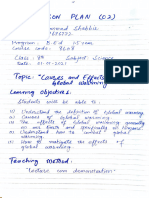 LESSON PLAN (02)
Program: B.Ed 1.5 year
Course code: 8608
Class: 8th Subject: Science
Date: 21-01-2021
Topic: "Causes and Effects of Global warming"
Learning Objectives:
Students will be able to:
(1) Understand the definition of Global warming
(2) Causes of Global warming
(3) The effects of Global warming generally
on our Earth and specifically on
(4) Understand how to mitigate the effects of
global warming.
Teaching Method:
"Lecture cum demonstration"